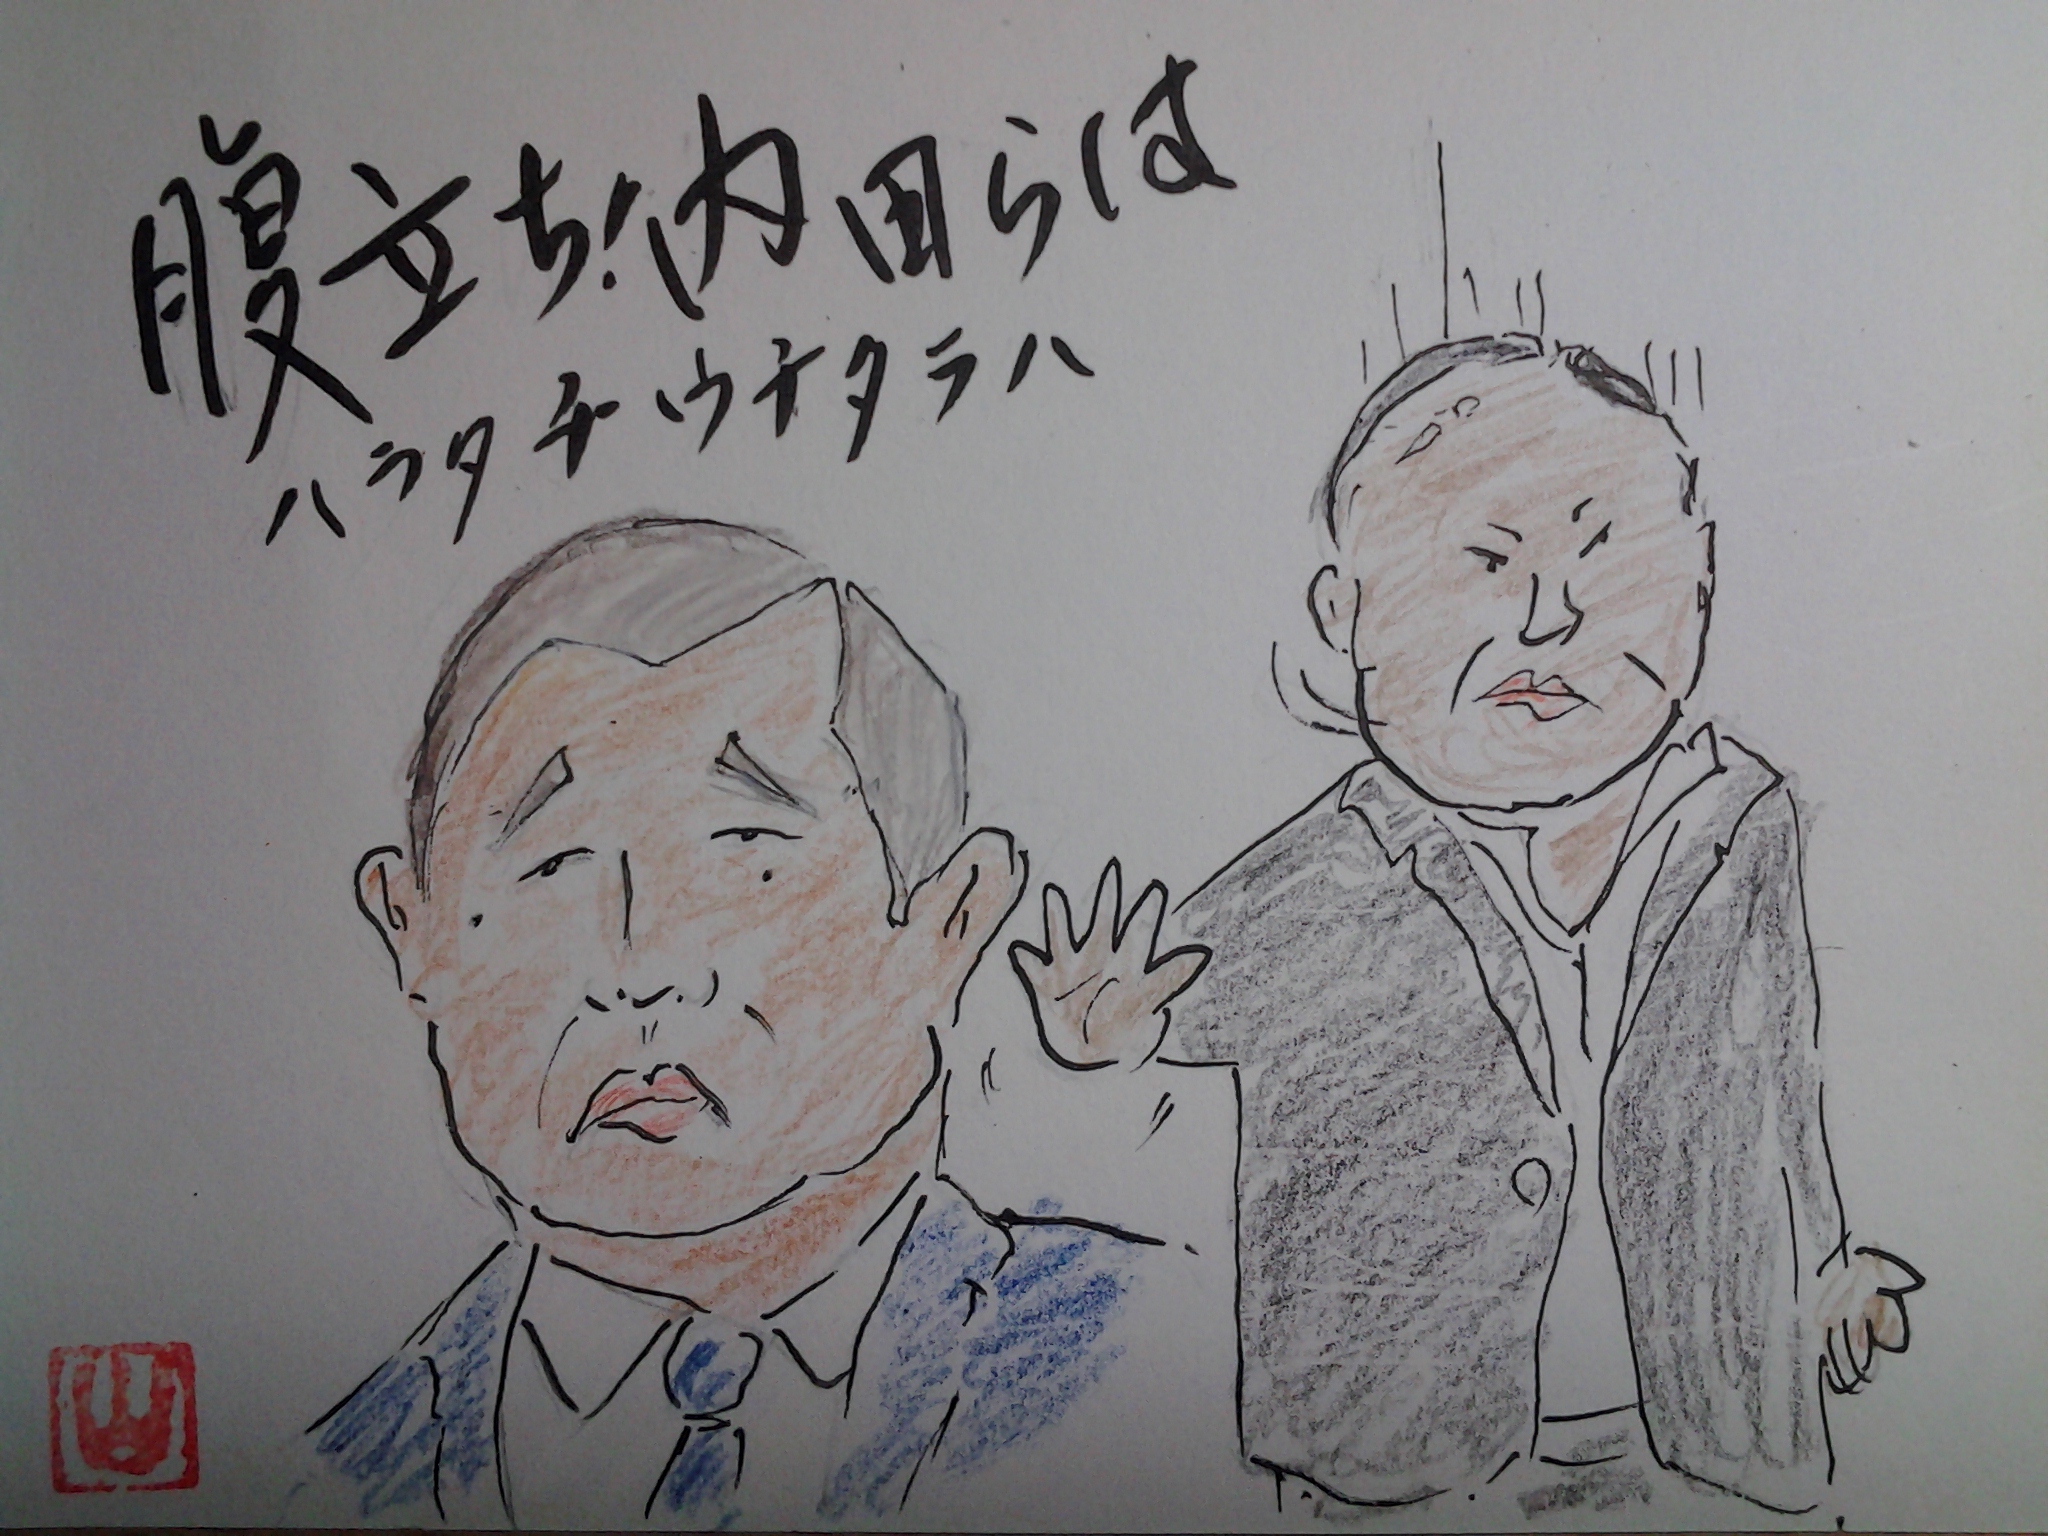 腹立ち!内田らは
ハラタチウチタラハ